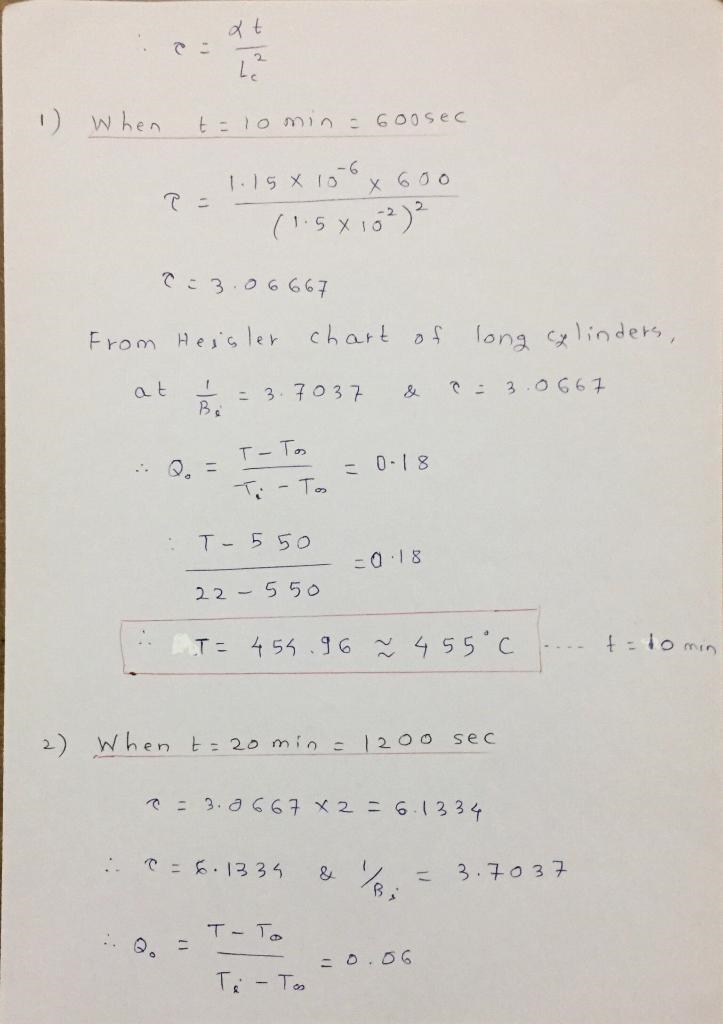 ∴ τ = αt / Lc²
1) When t = 10 min = 600 sec
τ = 1.15 × 10⁻⁶ × 600 / (1.5 × 10⁻²)²
τ = 3.06667
From Heisler chart of long cylinders,
at 1/Bi = 3.7037 & τ = 3.0667
∴ Q₀ = T - T∞ / Ti - T∞ = 0.18
∴ T - 550 / 22 - 550 = 0.18
∴ T = 454.96 ≈ 455°C .... t = 10 min
2) When t = 20 min = 1200 sec
τ = 3.0667 × 2 = 6.1334
∴ τ = 6.1334 & 1/Bi = 3.7037
∴ Q₀ = T - T∞ / Ti - T∞ = 0.06